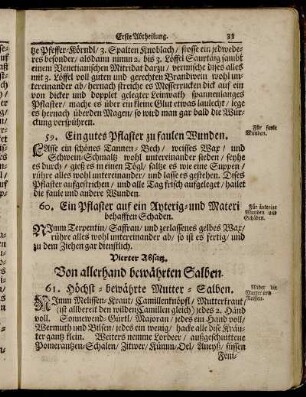 Erste Abtheilung. 31
tze Pfeffer-Körndl / 3. Spalten Knoblach / stosse ein jedwede-
res besonder / alsdann nimm 2. biß 3. Löffel Saurtäig sambt
einem Venetianischen Mitridat darzu / vermische dises alles
mit 3. Löffel voll guten und gerechten Brandwein wohl un-
tereinander ab / hernach streichs es Messerrucken dick auf ein
von dicker und doppelt gelegter Leinwath spannenlanges
Pflaster / mache es über ein kleine Glut etwas laulecht / lege
es hernach überden Magen / so wird man gar bald die Wür-
ckung verspühren.
59. Ein gutes Pflaster zu faulen Wunden.
Für faule
Wunden.
LAsse ein schönes Tannen-Bech / weisses Wax / und
Schwein-Schmaltz wohl untereinander sieden / seyhe
es durch / giesse es in einen Tögl / lasse es wie eine Suppen /
rühre alles wohl untereinander / und lasse es gestehen. Dises
Pflaster aufgestrichen / und alle Tag frisch aufgelegt / hailet
die faule und andere Wunden.
60. Ein Pflaster auf ein Ayterig- und Materi
behafften Schaden.
Für
Wunden und
Schäden.
NImm Terpentin / Saffran / und zerlassenes gelbes Wax /
rühre alles wohl untereinander ab / so ist es fertig / und
zu dem Ziehen gar dienstlich.
Vierter Absatz.
Von allerhand bewährten Salben.
61. Höchst-bewährte Mutter-Salben.
Wider die
Mutter
NImm Melissen-Kraut / Camillenknöpfl / Mutterkraut /
(ist allbereit den wilden Camillen gleich) jedes 2. Hand
voll. Sonnewend-Gürtl / Majoran / jedes ein Hand voll /
Wermuth und Bilsen / jedes ein wenig / hacke alle dise Kräu-
ter gantz klein. Weiters nemme Lorbeer / außgeschnittene
Pomerantzen-Schalen / Zitwer / Kümm-Oel / Aneyß / süssen
Feni-